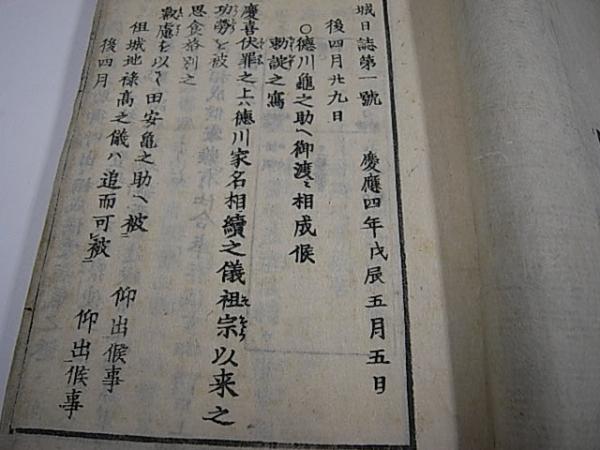 城日誌第一號 慶應四年戊辰五月五日
後四月廿九日
○德川龜之助ヘ御渡ニ相成候
勅諚之寫
慶喜伏罪之上ハ德川家名相續之儀祖宗以来之
功勞を被
思食格別之
叡慮を以て田安龜之助ヘ被 仰出候事
但城地祿高之儀ハ追而可被 仰出候事
後四月